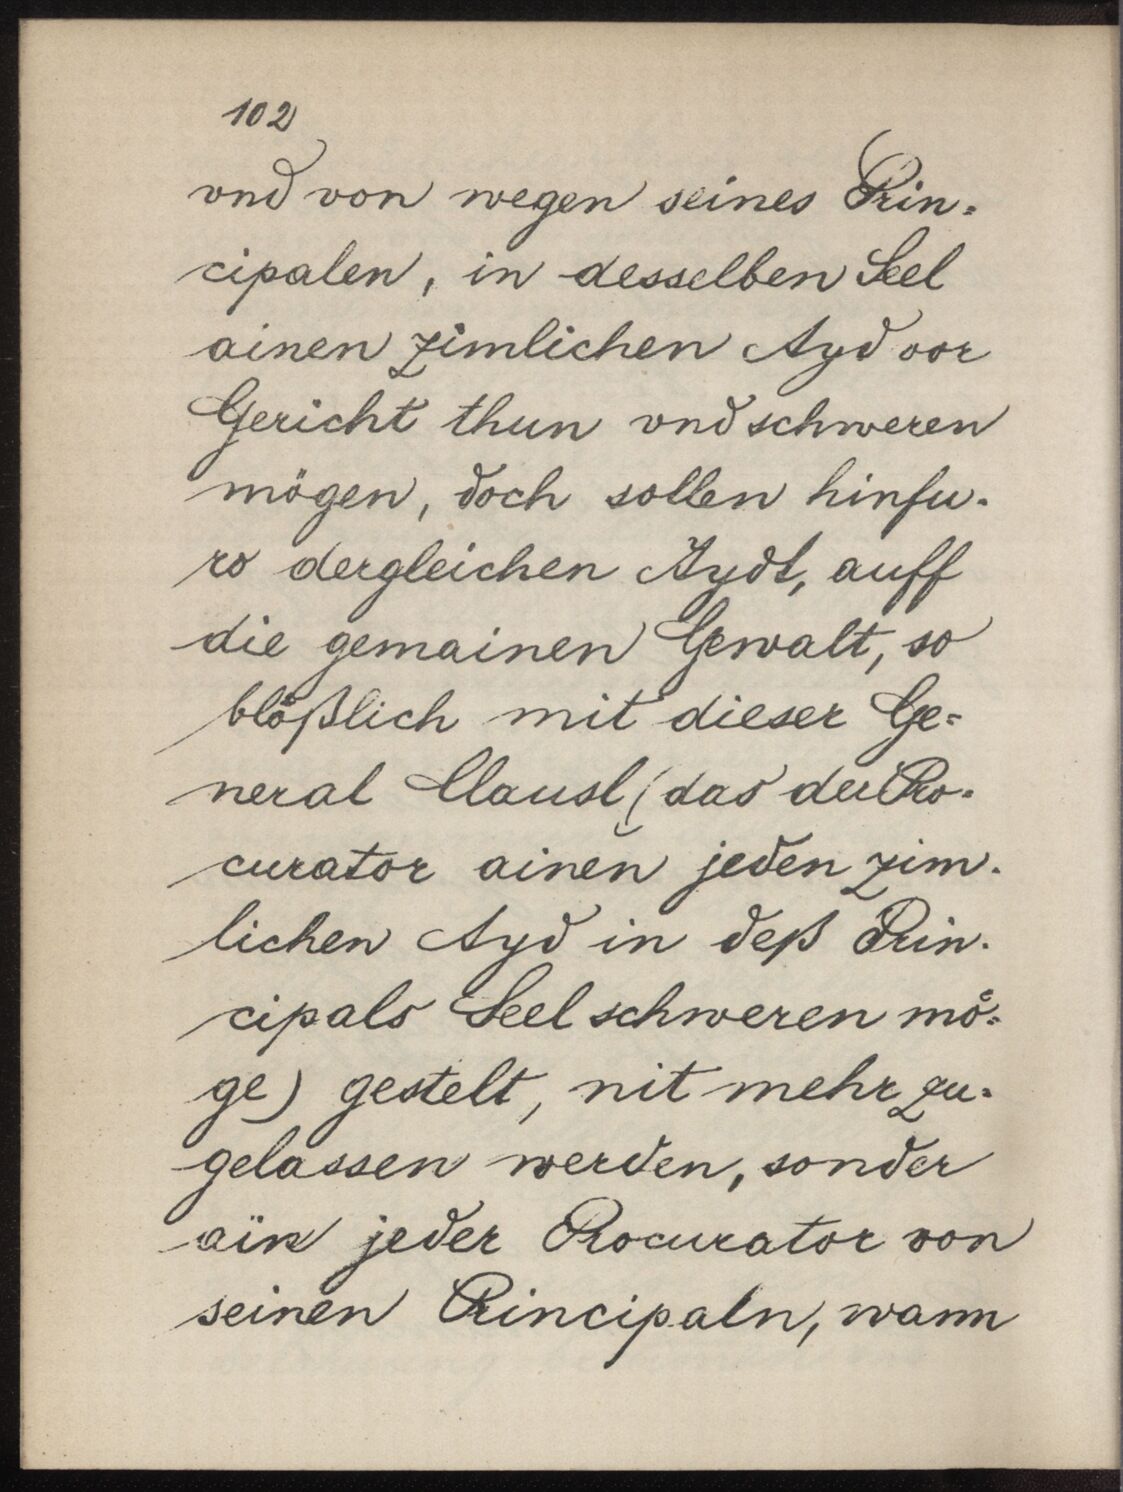 102
vnd von wegen seines Prin-
cipalen, in desselben Seel
ainen zimlichen Ayd vor
Gericht thun vnd schweren
mögen, doch sollen hinfu-
ro dergleichen Aydt, auff
die gemainen Gewalt, so
blößlich mit dieser Ge-
neral Clausl (das der Pro-
curator ainen jeden zim-
lichen Ayd in deß Prin-
cipals Seel schweren mö-
ge) gestelt, nit mehr zu-
gelassen werden, sonder
ain jeder Procurator von
seinen Principaln, wann